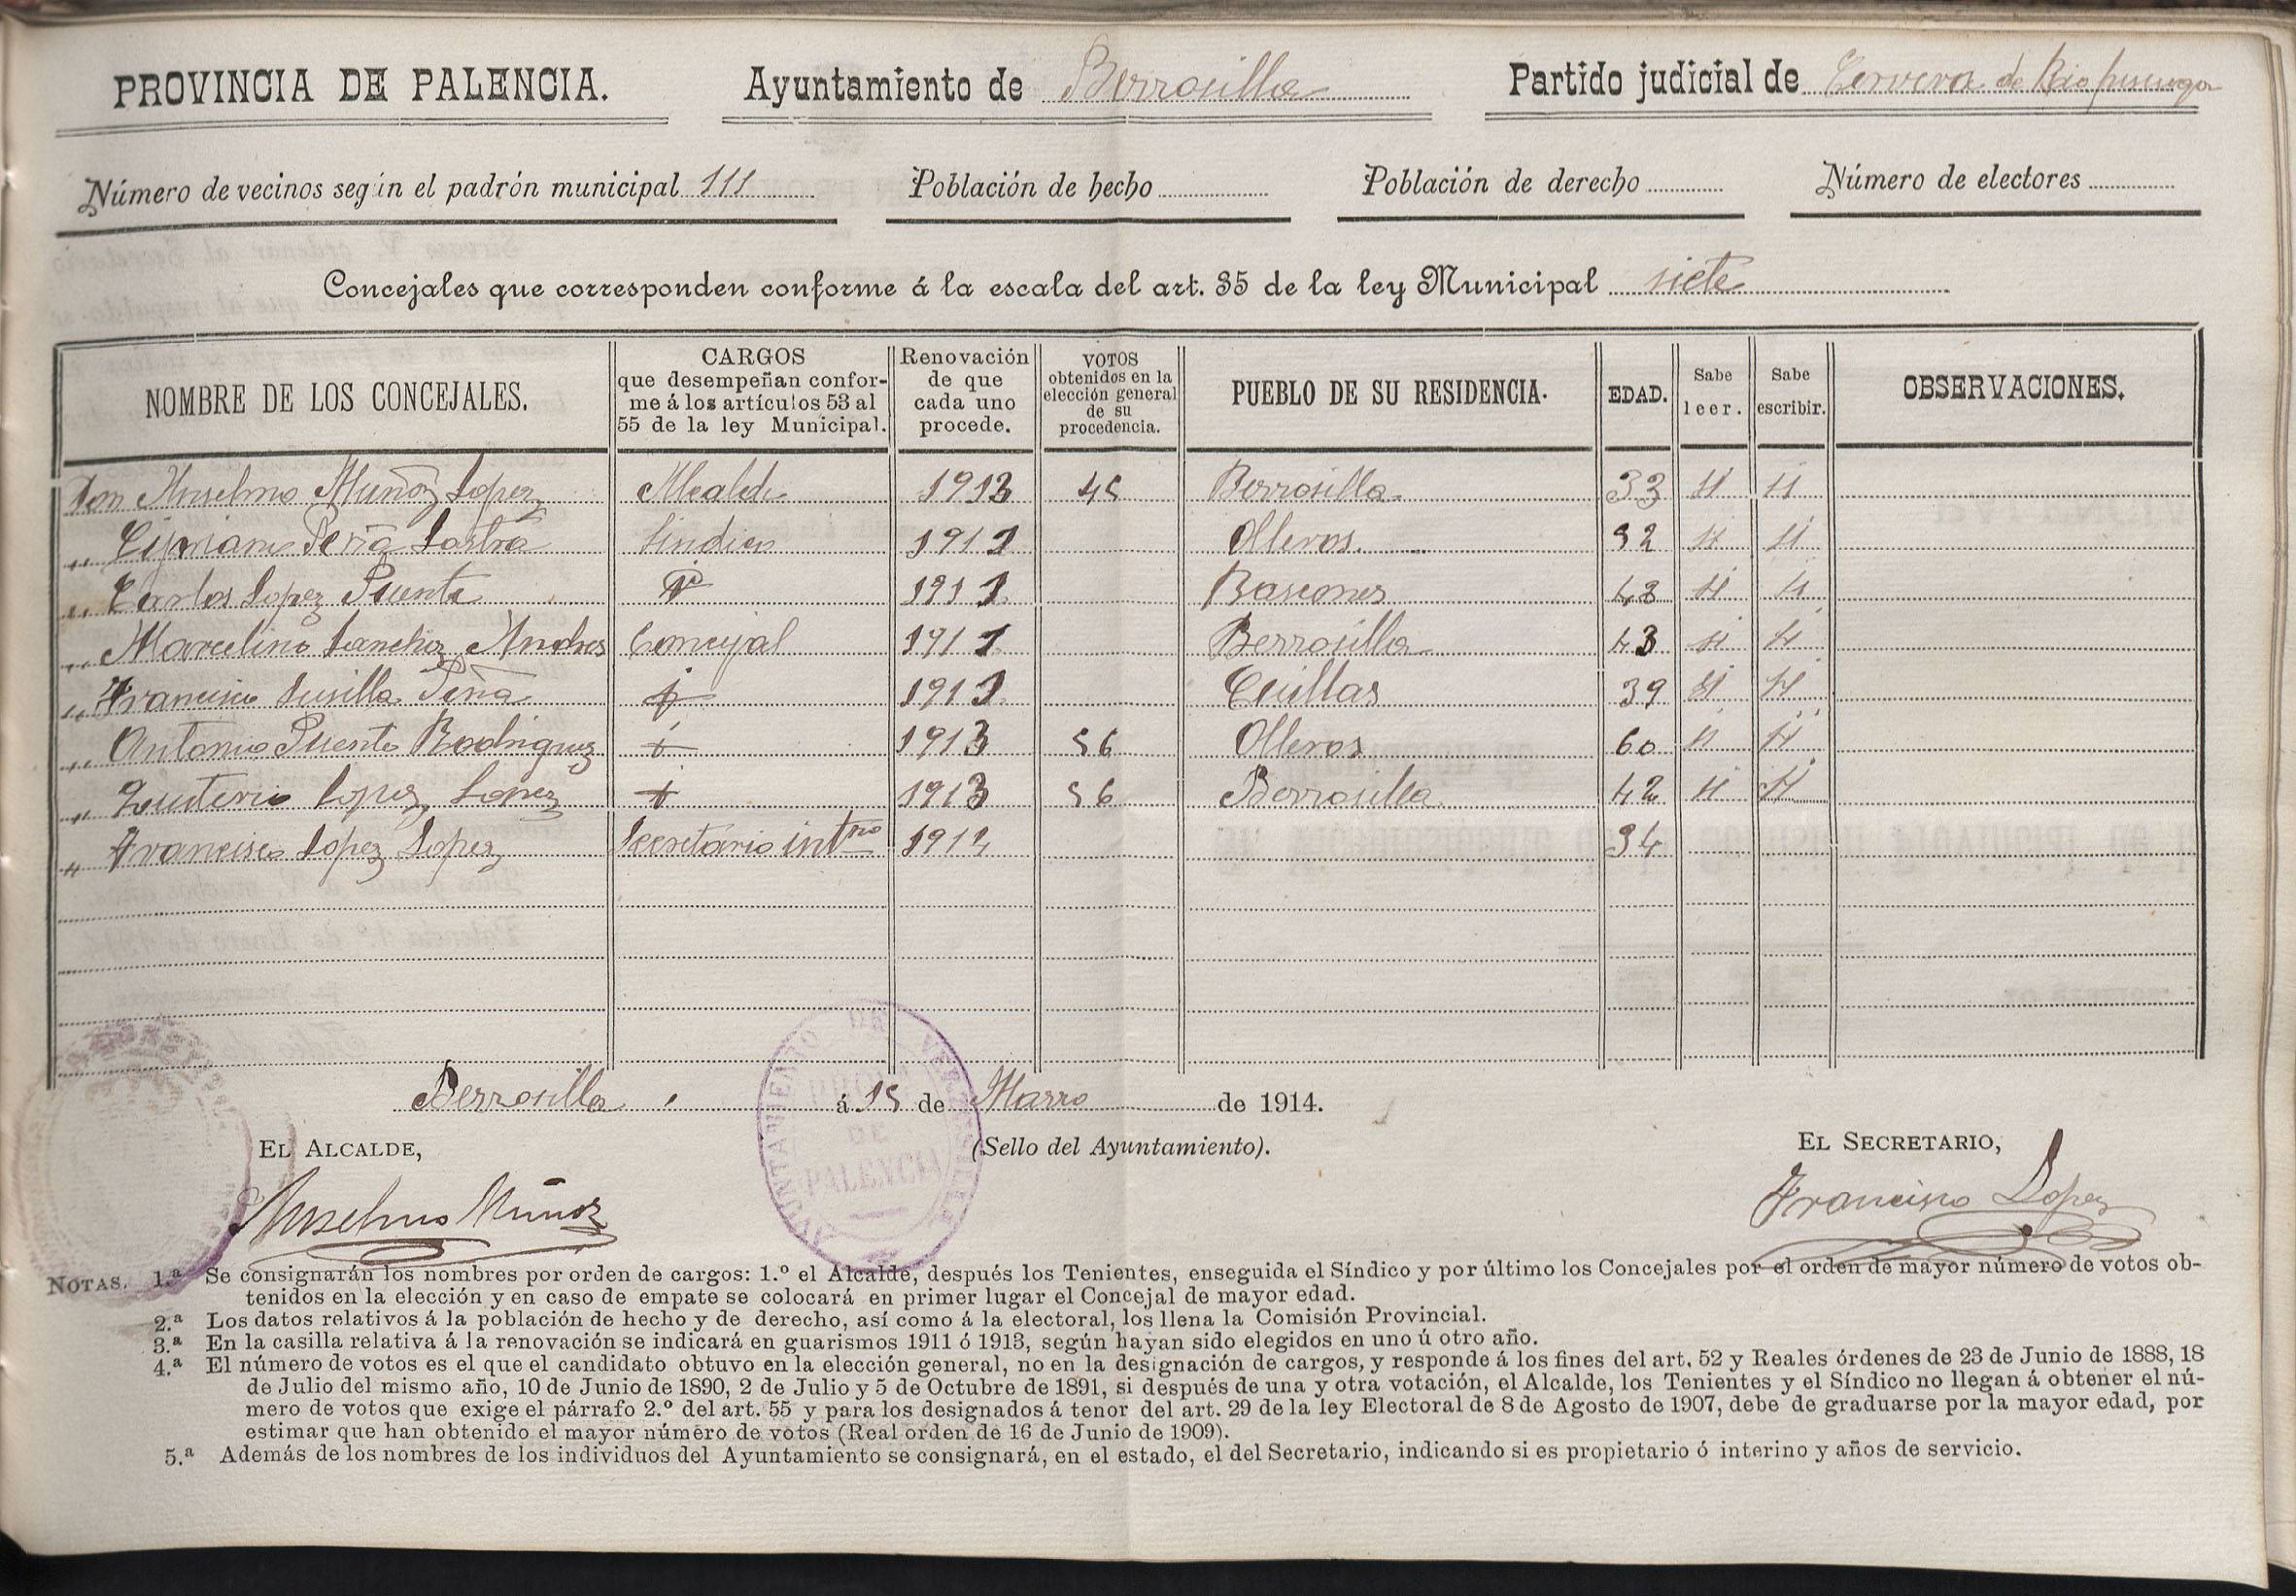 PROVINCIA DE PALENCIA. Ayuntamiento de Berrosilla Partido judicial de Cervera de Rio pisuerga
Número de vecinos según el padrón municipal 111 Población de hecho Población de derecho Número de electores
Concejales que corresponden conforme á la escala del art. 35 de la ley Municipal siete
NOMBRE DE LOS CONCEJALES. CARGOS que desempeñan conforme á los artículos 53 al 55 de la ley Municipal. Renovación de que cada uno procede. VOTOS obtenidos en la elección general de su procedencia. PUEBLO DE SU RESIDENCIA. EDAD. Sabe leer. Sabe escribir. OBSERVACIONES.
Don Anselmo Muñoz Lopez Alcalde 1913 45 Berrosilla 33 si si
" Cipriano Peña Lastra Sindico 1911 Olleros 52 si si
" Carlos Lopez Puente 1911 Bascones 48 si si
" Marcelino Sanchez Andres Concejal 1911 Berrosilla 43 si si
" Francisco Susilla Peña 1911 Cuillas 39 si si
" Antonio Puente Rodriguez 1913 56 Olleros 60 si si
" Leuterio Lopez Lopez 1913 56 Berrosilla 42 si si
" Francisco Lopez Lopez Secretario intno 1914 34
Berrosilla á 15 de Marzo de 1914.
EL ALCALDE, (Sello del Ayuntamiento). EL SECRETARIO,
AYUNTAMIENTO DE
PROVª DE PALENCIA
Anselmo Muñoz Francisco Lopez
NOTAS. 1.ª Se consignarán los nombres por orden de cargos: 1.º el Alcalde, después los Tenientes, enseguida el Síndico y por último los Concejales por el orden de mayor número de votos ob-
tenidos en la elección y en caso de empate se colocará en primer lugar el Concejal de mayor edad.
2.ª Los datos relativos á la población de hecho y de derecho, así como á la electoral, los llena la Comisión Provincial.
3.ª En la casilla relativa á la renovación se indicará en guarismos 1911 ó 1913, según hayan sido elegidos en uno ú otro año.
4.ª El número de votos es el que el candidato obtuvo en la elección general, no en la designación de cargos, y responde á los fines del art. 52 y Reales órdenes de 23 de Junio de 1888, 18
de Julio del mismo año, 10 de Junio de 1890, 2 de Julio y 5 de Octubre de 1891, si después de una y otra votación, el Alcalde, los Tenientes y el Síndico no llegan á obtener el nú-
mero de votos que exige el párrafo 2.º del art. 55 y para los designados á tenor del art. 29 de la ley Electoral de 8 de Agosto de 1907, debe de graduarse por la mayor edad, por
estimar que han obtenido el mayor número de votos (Real orden de 16 de Junio de 1909).
5.ª Además de los nombres de los individuos del Ayuntamiento se consignará, en el estado, el del Secretario, indicando si es propietario ó interino y años de servicio.